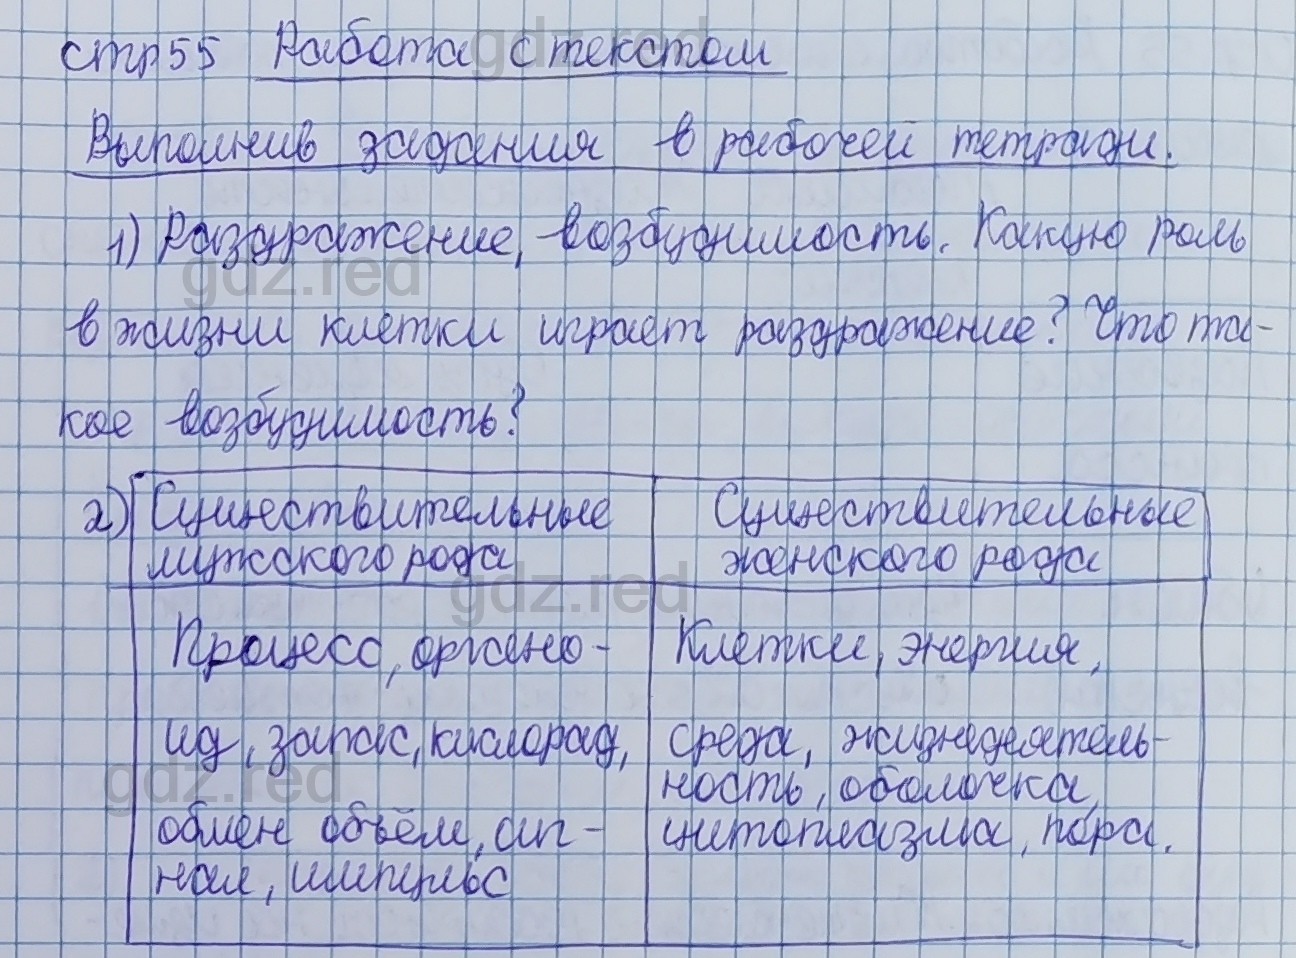 стр55 Работа с текстом
Выполнив задания в рабочей тетради.
1) Раздражение, возбудимость. Какую роль
в жизни клетки играет раздражение? Что та-
кое возбудимость?
2) Существительные мужского рода
Существительные женского рода
Процесс, органо-
ид, запас, кислорад,
обмен объём, сиг-
нал, импульс
Клетки, энергия,
среда, жизнедеятель-
ность, оболочка,
цитоплазма, пора.
gdz.red
gdz.red
gdz.red
gdz.red